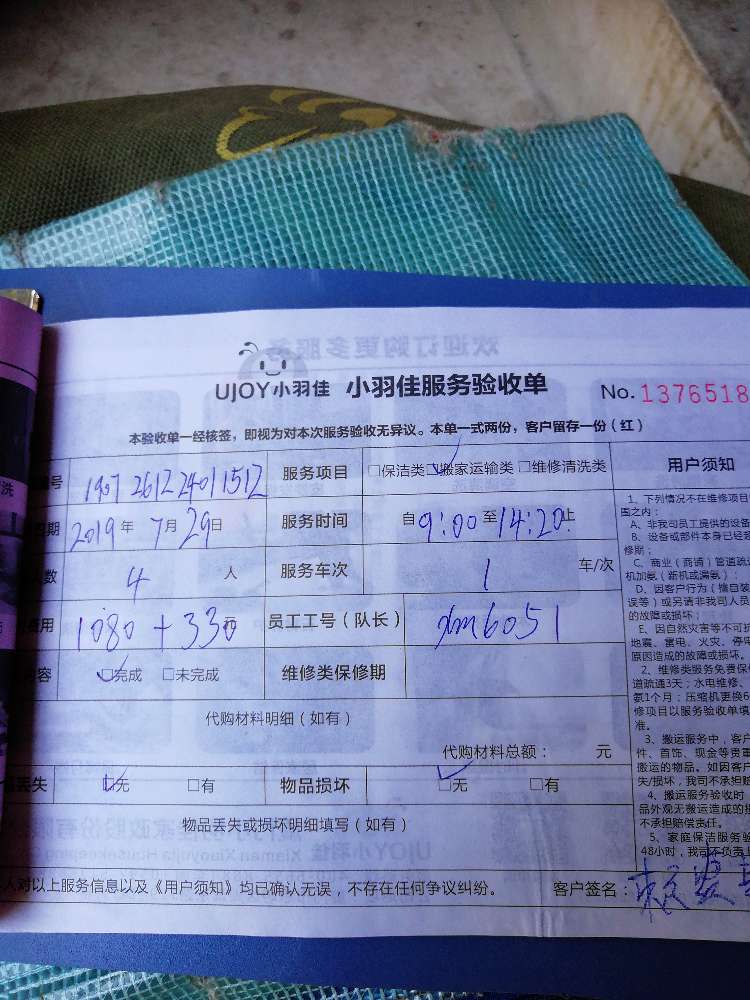 UJOY小羽佳 小羽佳服务验收单 No. 1376518
本验收单一经核签，即视为对本次服务验收无异议。本单一式两份，客户留存一份（红）
号 1907261224011512 服务项目 □保洁类 ☑搬家运输类 □维修清洗类 用户须知
期 2019年7月29日 服务时间 自9:00至14:20止
数 4 人 服务车次 1 车/次
费用 1080+330元 员工工号（队长） xm6051
内容 ☑完成 □未完成 维修类保修期
代购材料明细（如有）
代购材料总额： 元
丢失 ☑无 □有 物品损坏 ☑无 □有
物品丢失或损坏明细填写（如有）
人对以上服务信息以及《用户须知》均已确认无误，不存在任何争议纠纷。 客户签名：
1、下列情况不在维修项目
围之内：
A、非我司员工提供的设备
B、设备或部件本身已经
修期；
C、商业（商铺）管道疏
机加氨（新机或漏氨）；
D、因客户行为（擅自装
误等）或另请非我司人员
的故障或损坏；
E、因自然灾害等不可抗
地震、雷电、火灾、停电
原因造成的故障或损坏。
2、维修类服务免费保
道疏通3天；水电维修、
氨1个月；压缩机更换6
修项目以服务验收单填
准。
3、搬运服务中，客户
件、首饰、现金等贵重
搬运的物品。如因客户
失/损坏，我司不承担赔
4、搬运服务验收时
品外观无搬运造成的损
不承担赔偿责任。
5、家庭保洁服务验
48小时，我司不负责